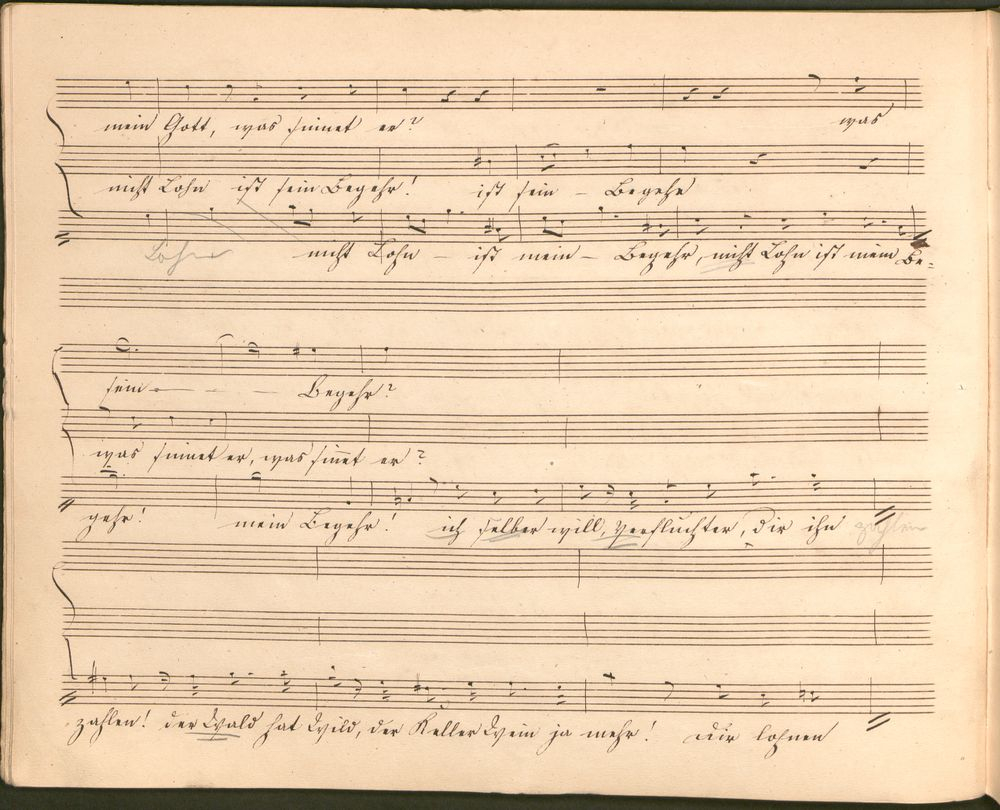 mein Gott, was sinnet er? was
nicht Lohn ist sein Begehr! ist sein – Begehr
Lohn nicht Lohn – ist mein – Begehr, nicht Lohn ist mein Be-
sein – – – Begehr?
was sinnet er, was sinnet er?
gehr! mein Begehr! ich selber will, Verfluchter, dir ihn zahlen
zahlen! der Wald hat Wild, der Keller Wein ja mehr! dir lohnen